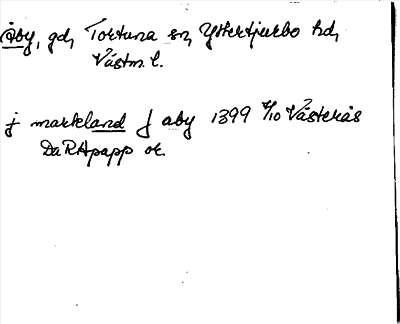 Åby, gd, Tortuna sn, Yttertjurbo hd,
Västm. l.
j markland J aby 1399 4/10 Västerås
DaRApapp or.